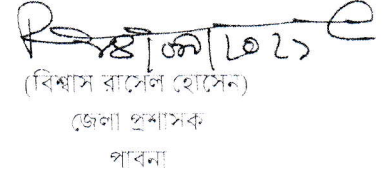 (বিশ্বাস রাসেল হোসেন)
জেলা প্রশাসক
পাবনা